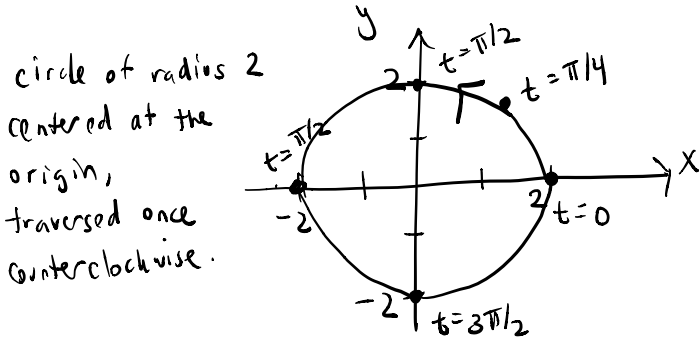 circle of radius 2
centered at the
origin,
traversed once
counterclockwise.
y
t=π/2
2
t=π/4
t=π/2
x
-2
2
t=0
-2
t=3π/2